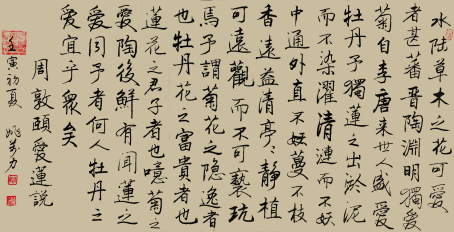 水陸草木之花可愛
者甚蕃晋陶淵明獨愛
菊自李唐来世人盛愛
牡丹予獨蓮之出淤泥
而不染濯清漣而不妖
中通外直不妖蔓不枝
香遠益清亭〻静植
可遠觀而不可褻玩
焉予謂菊花之隐逸者
也牡丹花之富貴者也
蓮花之君子者也噫菊之
愛陶後鮮有聞蓮之
愛同予者何人牡丹之
愛宜乎衆矣
周敦頤愛蓮説
壬寅初夏 姚